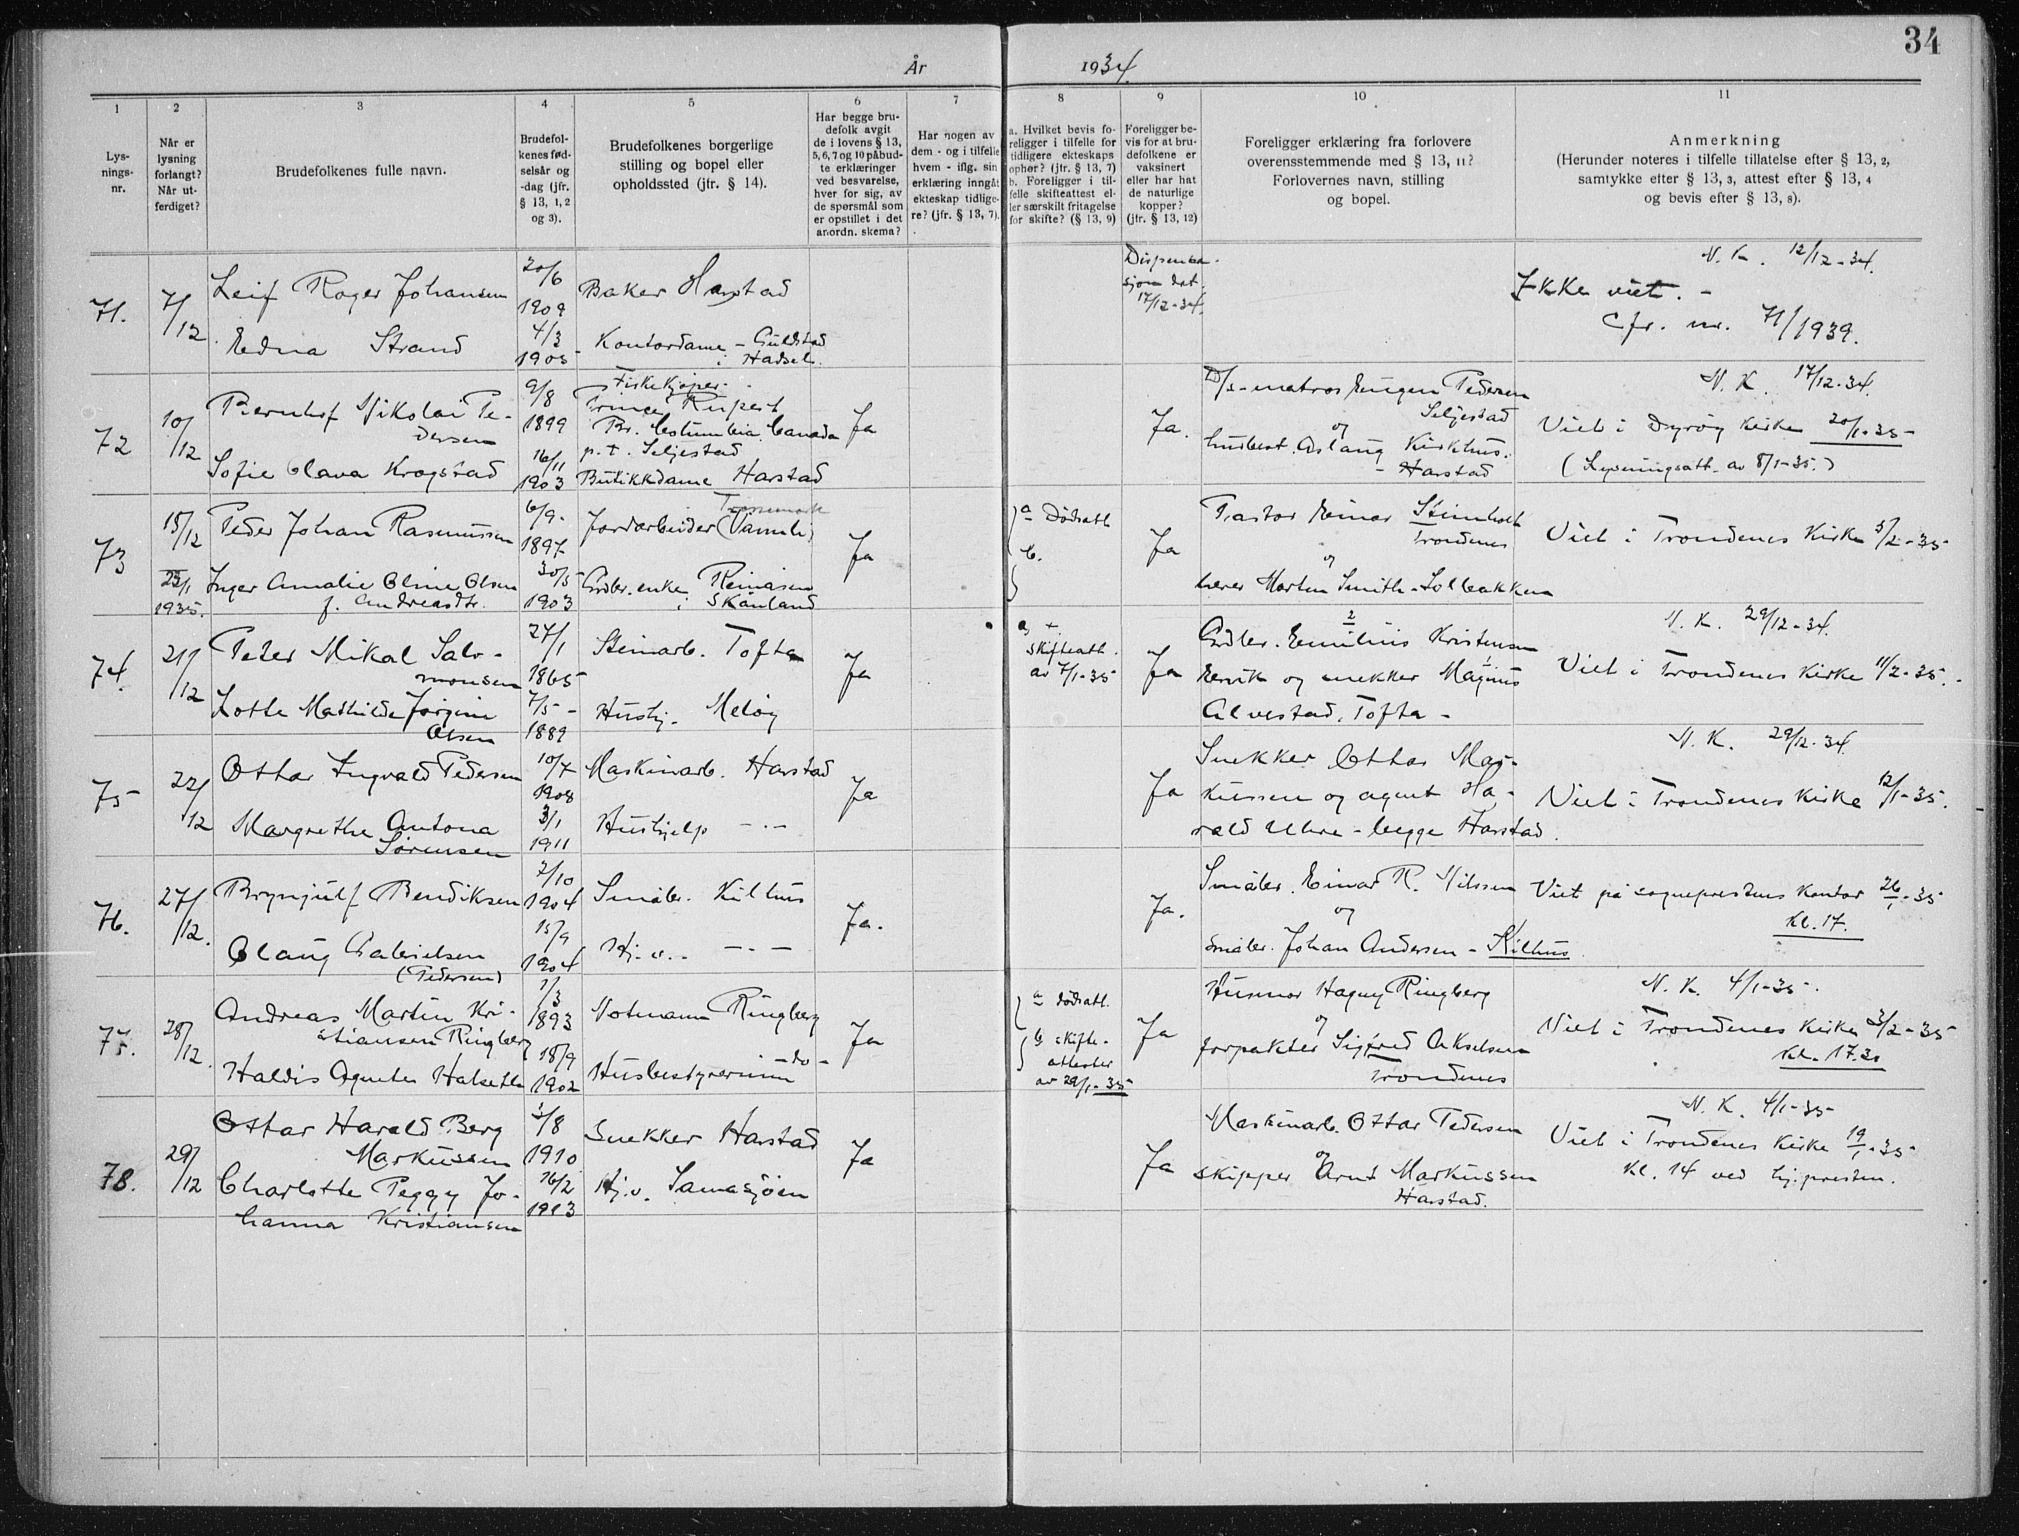 34
År 1934.
1 2 3 4 5 6 7 8 9 10 11
Lys-
nings-
nr.
Når er
lysning
forlangt?
Når ut-
ferdiget?
Brudefolkenes fulle navn.
Brudefol-
kenes fød-
selsår og
-dag (jfr.
§ 13, 1, 2
og 3).
Brudefolkenes borgerlige
stilling og bopel eller
opholdssted (jfr. § 14).
Har begge bru-
defolk avgit
de i lovens § 13,
5, 6, 7 og 10 påbud-
te erklæringer
ved besvarelse,
hver for sig, av
de spørsmål som
er opstillet i det
anordn. skema?
Har nogen av
dem - og i tilfelle
hvem - iflg. sin
erklæring inngåt
ekteskap tidlige-
re? (jfr. § 13, 7).
a. Hvilket bevis fo-
religger i tilfelle for
tidligere ekteskaps
ophør? (jfr. § 13, 7)
b. Foreligger i til-
felle skifteattest el-
ler særskilt fritagelse
for skifte? (§ 13, 9)
Foreligger be-
vis for at bru-
defolkene er
vaksinert
eller har hat
de naturlige
kopper?
(jfr. § 13, 12)
Foreligger erklæring fra forlovere
overensstemmende med § 13, 11?
Forlovernes navn, stilling
og bopel.
Anmerkning
(Herunder noteres i tilfelle tillatelse efter § 13, 2,
samtykke efter § 13, 3, attest efter § 13, 4
og bevis efter § 13, 8).
71.
7/12.
Leif Roger Johansen
20/6
1909
Baker Harstad
Edna Strand
4/3
1905
Kontordame - Guldstad
i Hadsel.
Dispensa-
sjon dat.
17/12-34.
N. K. 12/12-34.
Ikke viet. -
Cfr. nr. 71/1939.
72
10/12
Bernhof Nikolai Pe-
dersen
9/8
1899
Fiskekjøper.
Prince Rupert
Br. Columbia, Canada
p.t. Seljestad
Sofie Olava Krogstad
16/11
1903
Butikkdame Harstad
Ja
Ja.
D/s-matros Eugen Pedersen
Seljestad
og
husbest. Aslaug Kirkhus.
- Harstad
N. K. 17/12-34.
Viet i Dyrøy kirke 20/1-35
(Lysningsatt. av 8/1-35.)
73
15/12
23/1
1935.
Peder Johan Rasmussen
6/9-
1897
Jordarbeider (Vannli)
Inger Amalie Oline Olsen
f. Andreasdtr.
30/5
1903
Grdbr. enke Reinåsen
i Skånland
Ja
a Dødsatt
b.
Ja
Pastor Einar Steinholt
Trondenes
og
lærer Morten Smith-Solbakken
Viet i Trondenes kirke 5/2-35
74.
21/12
Peter Mikal Salo-
monsen
27/1
1865
Steinarb. Tofta
Lotte Mathilde Jørgine
Olsen
7/5-
1889
Hushj. Meløy
Ja
a, +.
skifteatt.
av 7/1-35
Ja
Grdbr. Emilius Kristensen
Ervik og snekker Magnus
Alvestad, Tofta -
N. K. 29/12-34.
Viet i Trondenes kirke 11/2-35.
75
22/12
Ottar Ingvald Pedersen
10/7
1908
Maskinarb. Harstad
Margrethe Antona
Sørensen
3/1
1911
Hushjelp - " -
Ja
Ja
Snekker Ottar Mar-
kussen og agent Ha-
rald Uhre - begge Harstad.
N. K. 29/12-34.
Viet i Trondenes kirke 12/1-35.
76.
27/12.
Brynjulf Bendiksen
2/10
1904
Småbr. Kilhus
Olaug Gabrielsen
(Pedersen)
15/9
1904
Hj. v. - " -
Ja.
Ja.
Småbr. Einar R. Nilssen
og
småbr. Johan Andersen - Kilhus
Viet på sogneprestens kontor 26/1-35
kl. 17.
77.
28/12.
Andreas Martin Kri-
stiansen Ringberg
1/3
1893
Notmann Ringberg
Haldis Agnete Halseth
18/9
1902
Husbestyrerinne -do-
Ja
a dødsatt.
b skifte-
attester
av 29/1-35
Ja
Husmor Hagny Ringberg
og
forpakter Sigfred Akselsen
Trondenes
N. K. 4/1-35.
Viet i Trondenes kirke 3/2-35
kl. 17.30
78.
29/12
Ottar Harald Berg
Markussen
3/8
1910
Snekker Harstad
Charlotte Peggy Jo-
hanna Kristiansen
16/2
1913
Hj.v. Samasjøen
Ja
Ja
Maskinarb. Ottar Pedersen
og
skipper Arnt Markussen
Harstad.
N. K. 4/1-35
Viet i Trondenes kirke 19/1-35
kl. 14 ved hj.presten.